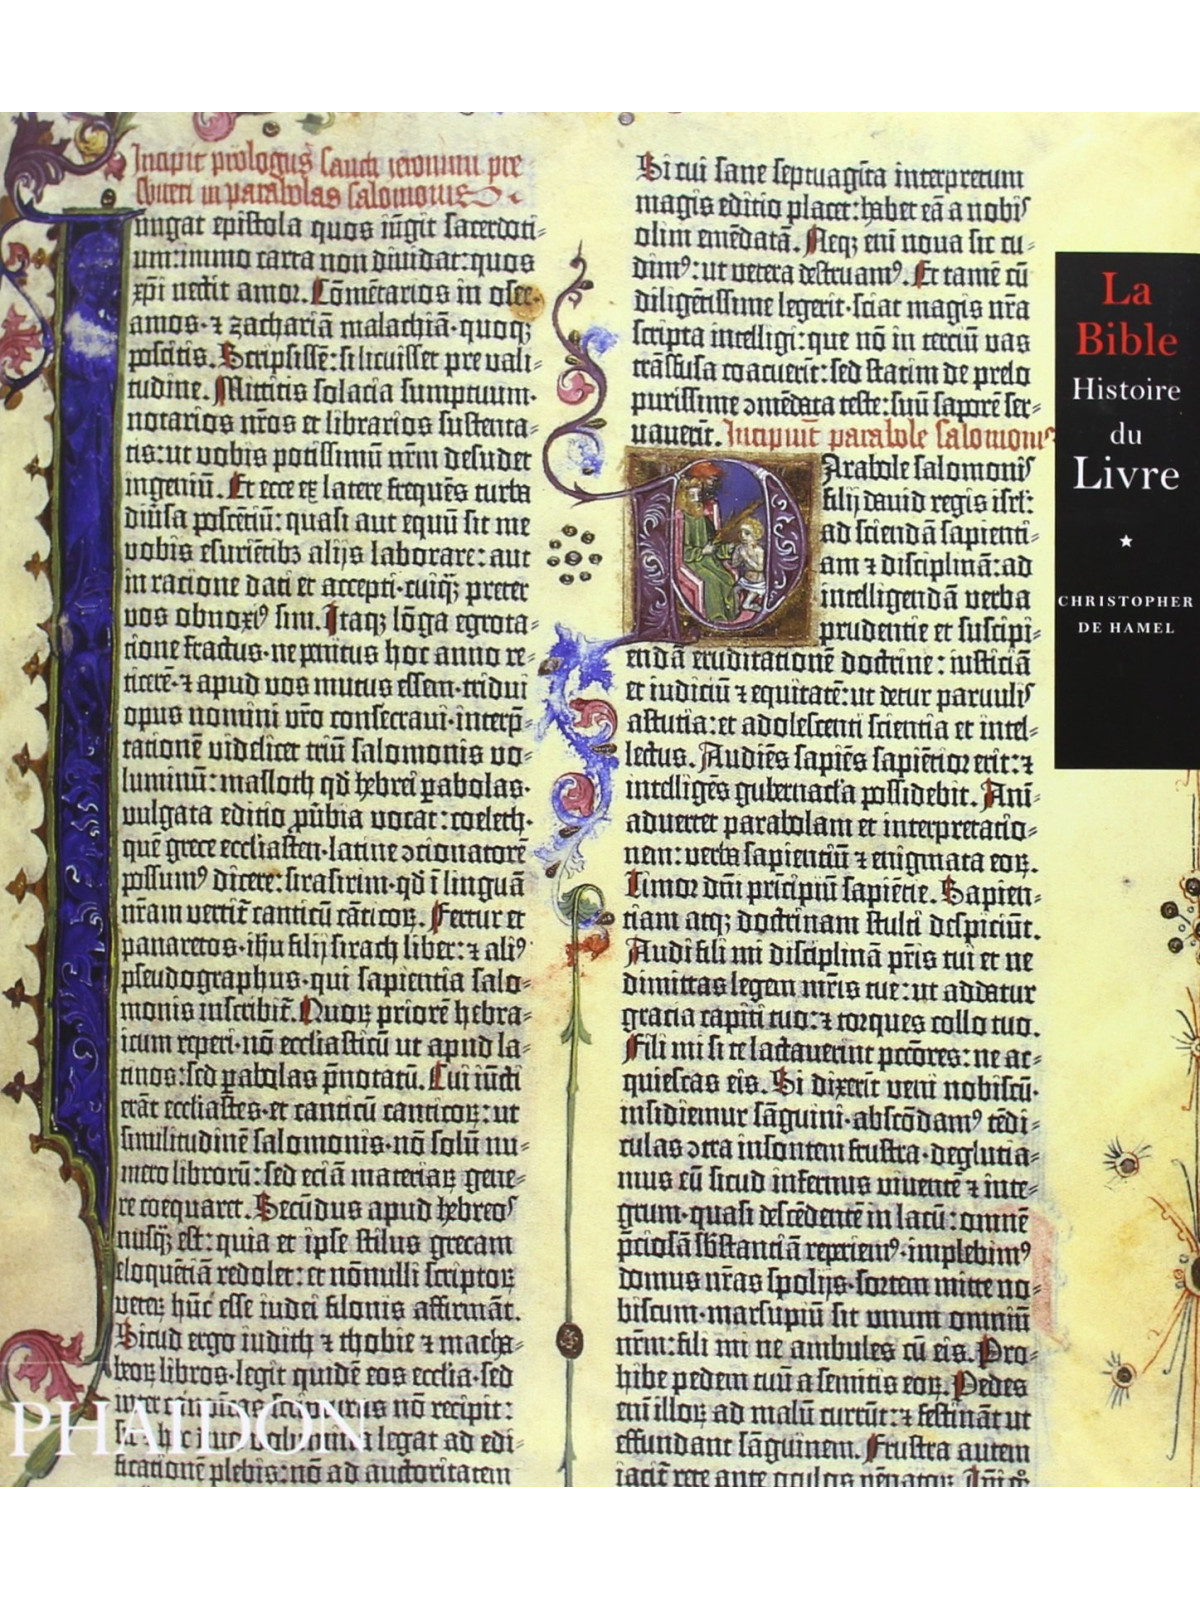 Incipit prologus sancti ieronimi pre
sbiteri in parabolas salomonis
Iungat epistola quos iūgit sacerdoti⸗
um:immo carta non diuidat:quos
xpi nectit amor. Cōmētarios in osee·
amos·⁊ zachariā malachiā·quoqꝫ
poscitis. Scripsissē:si licuisset pre vali⸗
tudine. Mittitis solacia sumptuum·
notarios nr̄os et librarios sustenta⸗
tis:ut vobis potissimū nr̄m desudet
ingeniū. Et ecce ex latere frequēs turba
diūsa poscētiū: quasi aut equū sit me
vobis esuriētibꝫ alijs laborare: aut
in ratione dati et accepti·cuiqꝫ preter
vos obnoxiꝰ sim. Itaqꝫ lōga egrota⸗
tione fractus·ne penitus hoc anno re⸗
ticerē·⁊ apud vos mutus essem·tridui
opus nomini vr̄o consecraui·interp̄⸗
tationē videlicet triū salomonis vo⸗
luminū: masloth qd̄ hebrei ꝑabolas·
vulgata editio ꝓuībia vocat: coeleth·
quē grece ecclīasten·latine ↄcionatorē
possumꝰ dicere: sirasirim·qd̄ ī linguā
nr̄am vertit̄ canticū cāticoꝝ. Fertur et
panaretos·ihu filij sirach liber: ⁊ aliꝰ
pseudographus·qui sapientia salo⸗
monis inscribit̄. Quoꝝ priorē hebra⸗
icum reperi·nō ecclīasticū ut apud la⸗
tinos:sed ꝑabolas p̄notatū. Cui iūcti
erāt ecclīastes·et canticū canticoꝝ: ut
similitudinē salomonis·nō solū nu⸗
mero librorū: sed eciā materiaꝝ gene⸗
re coequaret. Secūdus apud hebreos
nusqꝫ est: quia et ipse stilus grecam
eloquētiā redolet: et nōnulli scriptoꝝ
veteꝝ hūc esse iudei filonis affirmāt.
Sicud ergo iudith ⁊ thobie ⁊ macha⸗
beoꝝ libros·legit quidē eos ecclīa·sed
nō recipit:
legat ad edi⸗
ficationē plebis:nō ad auctoritatem
Si cui sane septuagīta interpretum
magis editio placet: habet eā a nobis
olim emēdatā. Neqꝫ eni noua sic cu⸗
dimꝰ: ut vetera destruamꝰ. Et tamē cū
diligētissime legerit·sciat magis nr̄a
scripta intelligi: que nō in terciū vas
trāsfusa coacuerit: sed statim de prelo
purissime ↄmēdata teste: suū saporē ser⸗
uauerit. Incipiūt parabole salomonis
Parabole salomonis
filij dauid regis isrl̄:
ad sciendā sapienti⸗
am ⁊ disciplinā: ad
intelligendā verba
prudentie et suscipi⸗
endā eruditationē doctrine: iusticiā
et iudiciū ⁊ equitatē: ut detur paruulis
astutia: et adolescenti scientia et intel⸗
lectus. Audiēs sapiēs sapientior erit: ⁊
intelligēs gubernacula possidebit. Ani⸗
aduertet parabolam et interpretacio⸗
nem: verba sapientiū ⁊ enigmata eoꝝ.
Timor dn̄i pricipiū sapiētie. Sapien⸗
tiam atqꝫ doctrinam stulti despiciūt.
Audi fili mi disciplinā pr̄is tui et ne
dimittas legem mr̄is tue: ut addatur
gracia capiti tuo: ⁊ torques collo tuo.
Fili mi si te lactauerint pcc̄ores: ne ac⸗
quiescas eis. Si dixerīt veni nobiscū·
insidiemur sāguini·abscōdamꝰ tēdi⸗
culas ↄtra insontem frustra·deglutia⸗
mus eū sicud infernus viuentē ⁊ inte⸗
grum·quasi descēdentē in lacū: omnē
p̄ciosā sb̄stanciā reperiemꝰ·implebimꝰ
domus nr̄as spolijs·sortem mitte no⸗
biscum·marsupiū sit unum omniū
nr̄m: fili mi ne ambules cū eis. Pro⸗
hibe pedem tuū a semitis eoꝝ. Pedes
eni illoꝝ ad malū currūt: ⁊ festināt ut
effundant sāguinem. Frustra autem
iacit̄ rete ante oculos
La
Bible
Histoire
du
Livre
★
CHRISTOPHER
DE HAMEL
PHAIDON